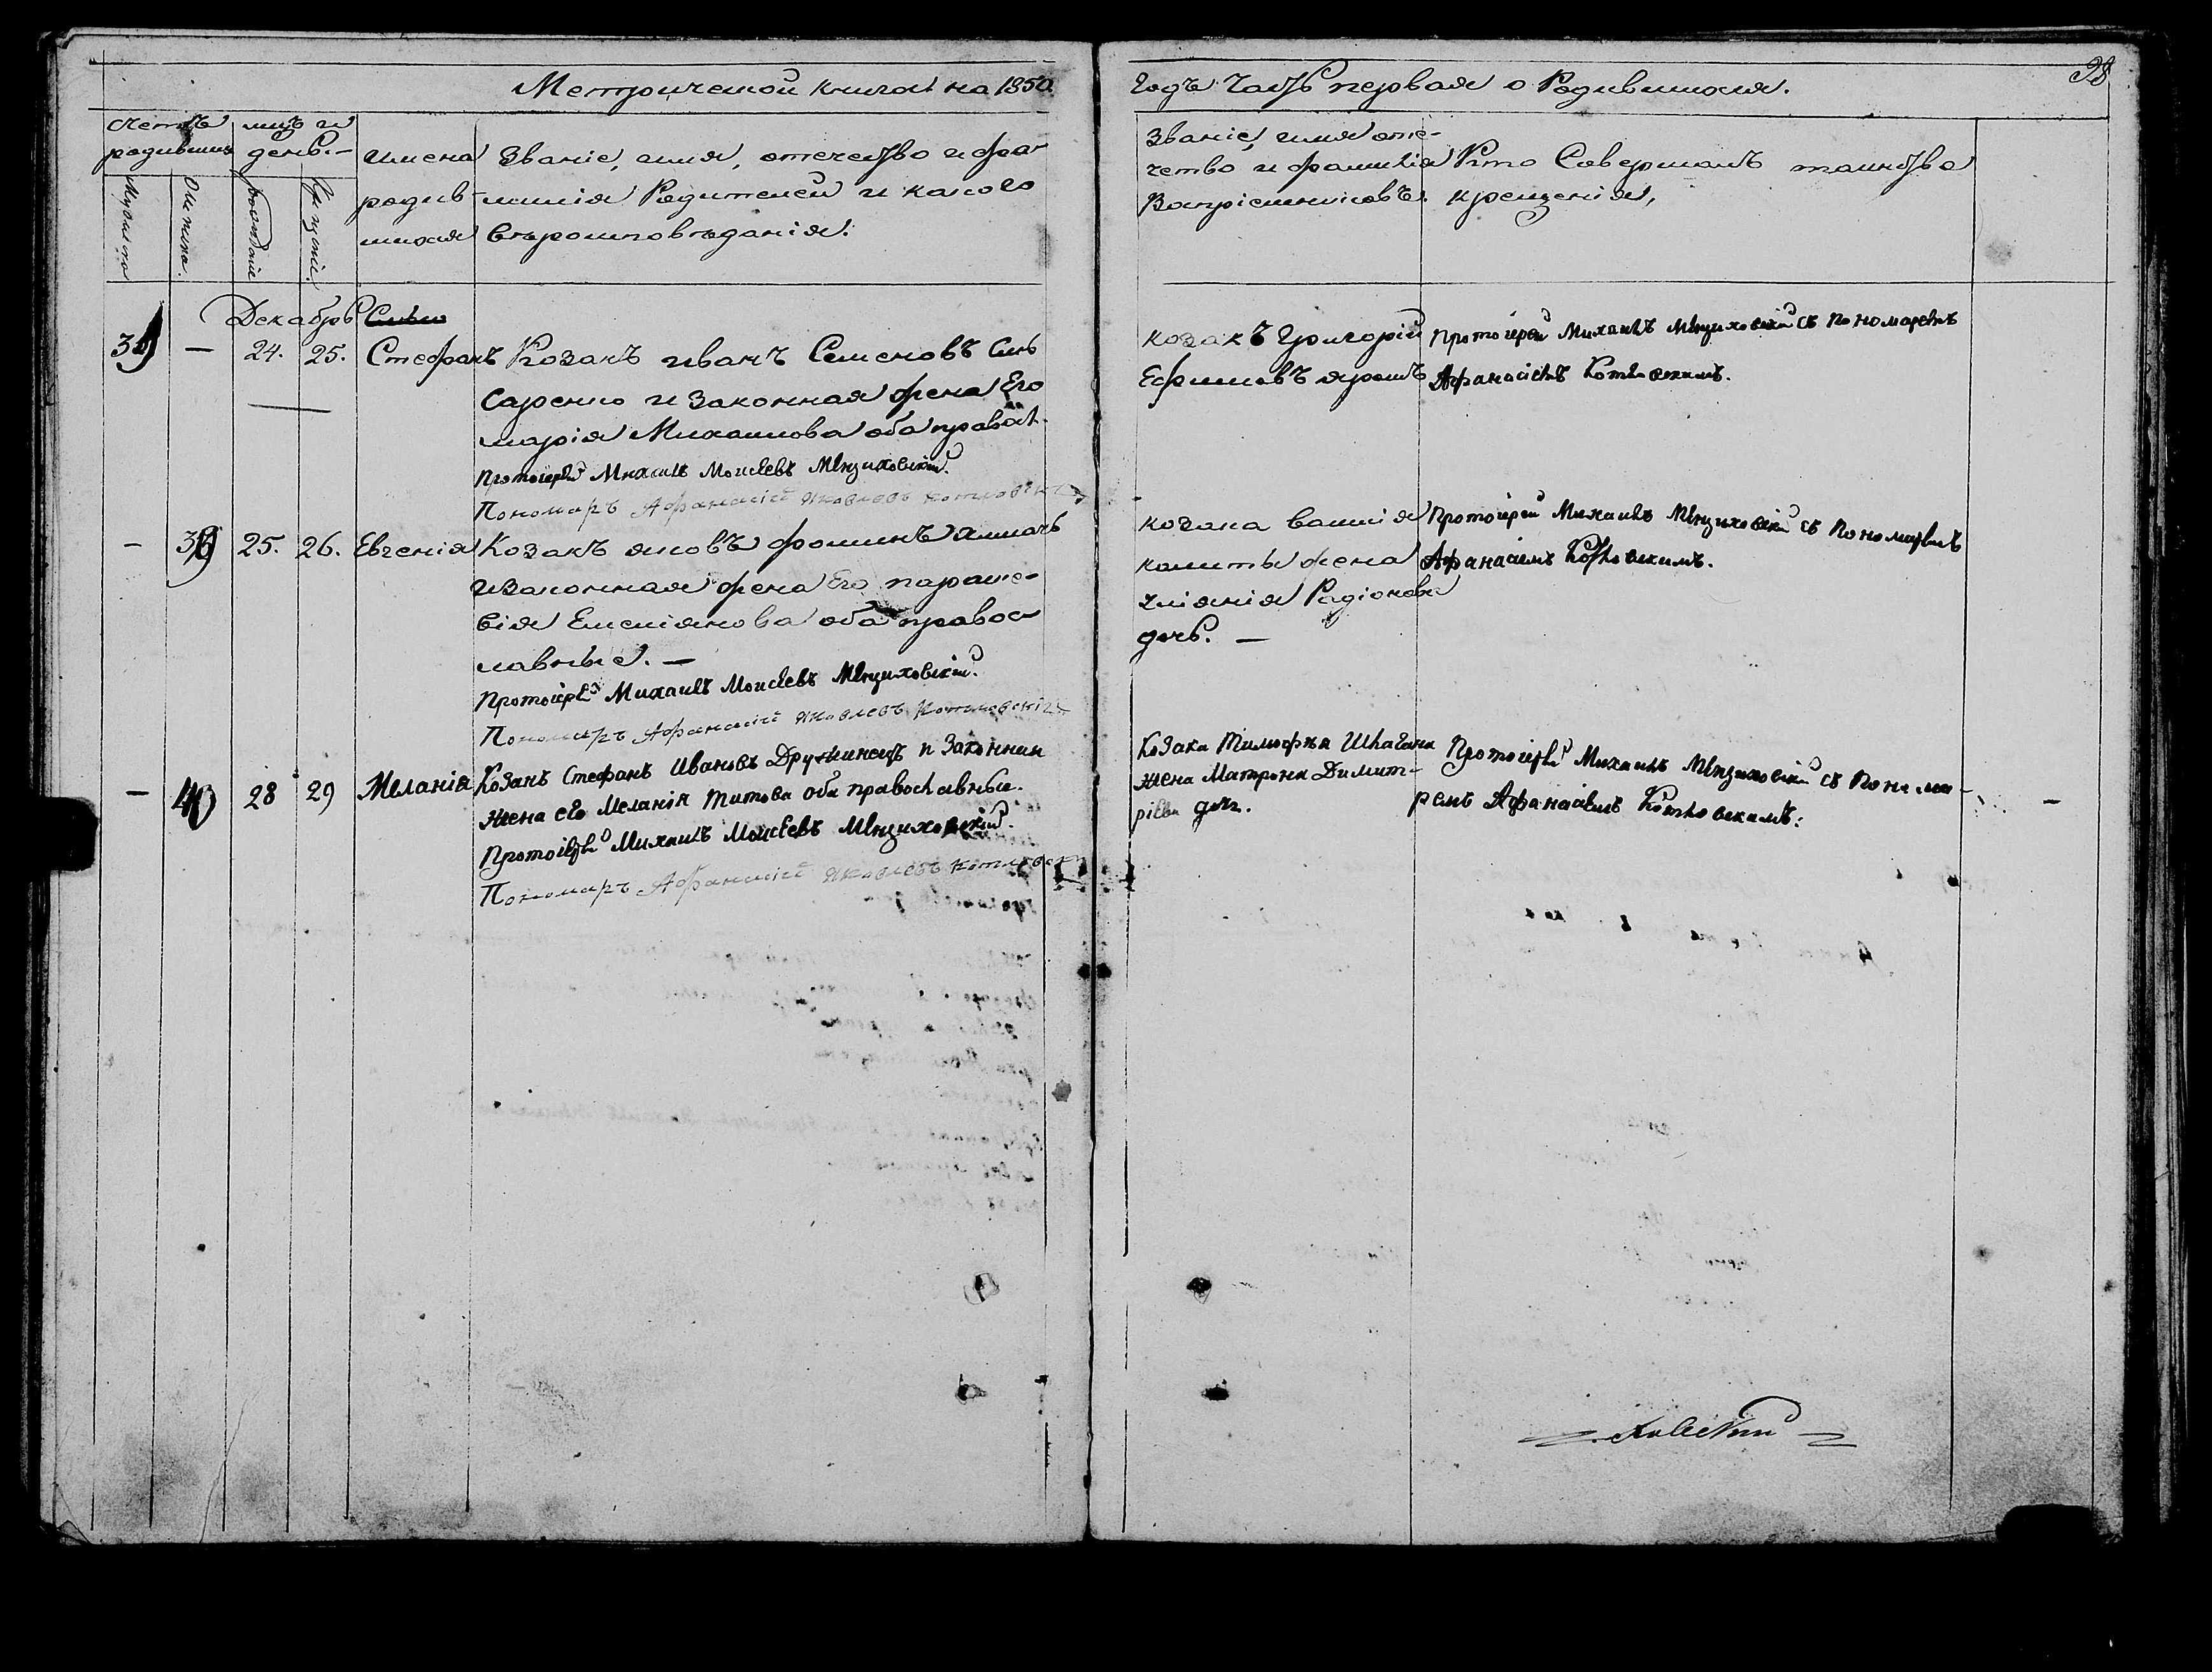 Метрической книги на 1850
Годъ Часть первая о Родившихся.
Счетъ родившихся
мцъ и день.
Мужеска
Женска
рожденіе
Крещеніе.
имена родив-
шихся
Званіе, имя, отечество и фа-
милія Родителей и какого
вѣроисповѣданія.
Званіе, имя оте-
чество и фамилія
Воспріемниковъ.
Кто Совершалъ таинство
крещенія,
Декабрь
— 24. 25. Стефанъ Козакъ иванъ Семеновъ Сынъ
Саренко и Законная жена Его
марія Михаилова оба правос.
Протоіерей Михаилъ Моисеевъ Мѣнзиховскій.
Пономарь Афанасій Яковлевъ Котловскій
козакъ Григорій
Ефимовъ ярошъ
Протоіерей Михаилъ Мѣнзиховскій съ Пономаремъ
Афанасіемъ Котловскимъ.
— 39 25. 26. Евгенія Козакъ яковъ фоминъ
изаконная жена Его параске-
вія Емеліянова оба правос
лавные. —
Протоіерей Михаилъ Моисеевъ Мѣнзиховскій.
Пономарь Афанасій Яковлевъ Котловскій
козака василія
жена
Радіонова
дочь. —
Протоіерей Михаилъ Мѣнзиховскій съ Пономаремъ
Афанасіемъ Котловскимъ.
— 40 28 29 Меланія Козакъ Стефанъ Ивановъ Дружинецъ и Законная
жена его Меланія Титова оба православные.
Протоіерей Михаилъ Моисеевъ Мѣнзиховскій.
Пономарь Афанасій Яковлевъ Котловскій
Козака Тимофѣя Шпагана
жена Матрона Димит-
ріева дочь.
Протоіерей Михаилъ Мѣнзиховскій съ Понома-
ремъ Афанасіемъ Котловскимъ.